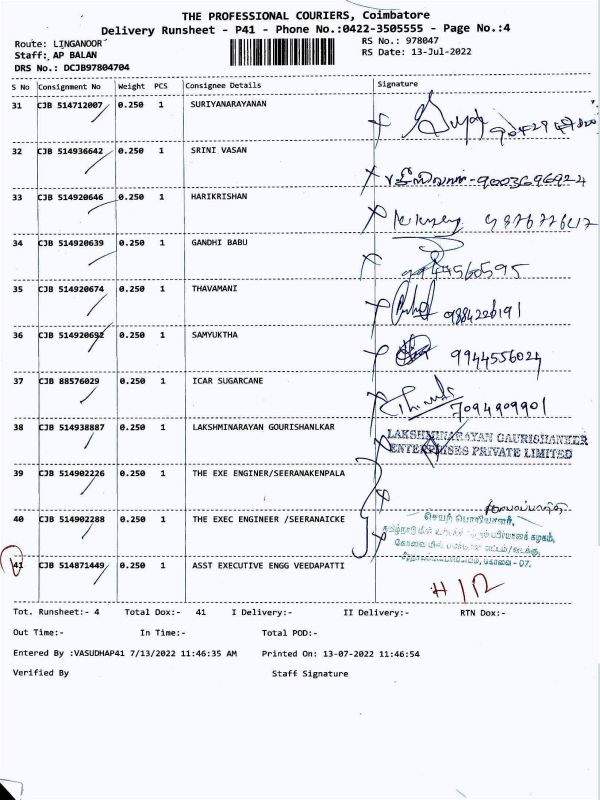 THE PROFESSIONAL COURIERS, Coimbatore
Delivery Runsheet - P41 - Phone No.:0422-3505555 - Page No.:4
Route: LINGANOOR
RS No.: 978047
Staff: AP BALAN
RS Date: 13-Jul-2022
DRS No.: DCJB97804704
S No Consignment No Weight PCS Consignee Details Signature
31 CJB 514712007 0.250 1 SURIYANARAYANAN
32 CJB 514936642 0.250 1 SRINI VASAN 9003696924
33 CJB 514920646 0.250 1 HARIKRISHAN
34 CJB 514920639 0.250 1 GANDHI BABU 9944560595
35 CJB 514920674 0.250 1 THAVAMANI 9884226191
36 CJB 514920692 0.250 1 SAMYUKTHA 9944556024
37 CJB 88576029 0.250 1 ICAR SUGARCANE 7094909901
38 CJB 514938887 0.250 1 LAKSHMINARAYAN GOURISHANLKAR
LAKSHMINARAYAN GAURISHANKER
ENTERPRISES PRIVATE LIMITED
39 CJB 514902226 0.250 1 THE EXE ENGINER/SEERANAKENPALA
40 CJB 514902288 0.250 1 THE EXEC ENGINEER /SEERANAICKE
செயற் பொறியாளர்,
கழகம்,
கோவை
கோவை - 07.
41 CJB 514871449 0.250 1 ASST EXECUTIVE ENGG VEEDAPATTI
Tot. Runsheet:- 4 Total Dox:- 41 I Delivery:- II Delivery:- RTN Dox:-
Out Time:- In Time:- Total POD:-
Entered By :VASUDHAP41 7/13/2022 11:46:35 AM Printed On: 13-07-2022 11:46:54
Verified By Staff Signature